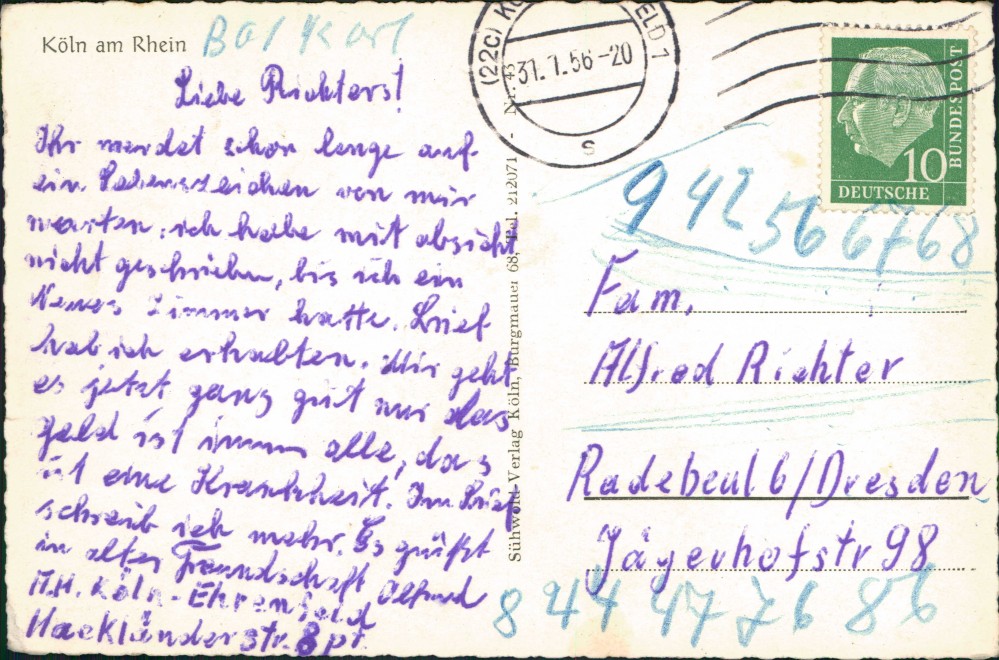 Köln am Rhein
Liebe Richters!
Ihr werdet schon lange auf
ein Lebenszeichen von mir
warten, ich habe mit absicht
nicht geschrieben, bis ich ein
Neues Zimmer hatte. Brief
hab ich erhalten. Mir geht
es jetzt ganz gut nur das
geld ist immer alle, das
ist eine Krankheit. Im Brief
schreib ich mehr. Es grüßt
in alter Freundschaft Alfred
Köln-Ehrenfeld
Hackländerstr. 8 pt.
Sühwold-Verlag Köln, Burgmauer 68, Tel. 212071 - Nr. 43
(22c) ELD 1
31.7.56-20
s
10
DEUTSCHE
BUNDESPOST
9 42 56 67 68
Fam.
Alfred Richter
Radebeul 6/Dresden
Jägerhofstr 98
8 44 47 76 86